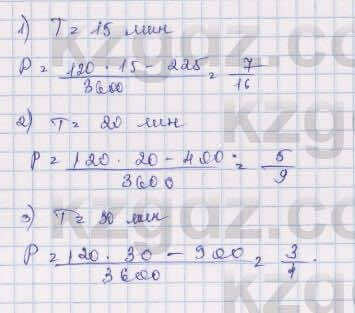 1) T = 15 мин
P = 120 · 15 - 225 / 3600 = 7/16
2) T = 20 мин
P = 120 · 20 - 400 / 3600 = 5/9
3) T = 30 мин
P = 120 · 30 - 900 / 3600 = 3/4.
kzgdz.com